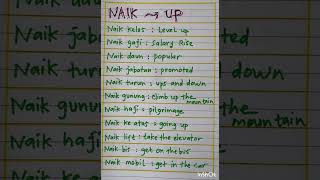 NAIK → UP
Naik kelas : Level up
Naik gaji : Salary Rise
Naik daun : populer
Naik jabatan : promoted
Naik turun : ups and down
Naik gunung : climb up the mountain
Naik haji : pilgrimage
Naik ke atas : going up
Naik lift : take the elevator
Naik bis : get on the bis
Naik mobil : get in the car